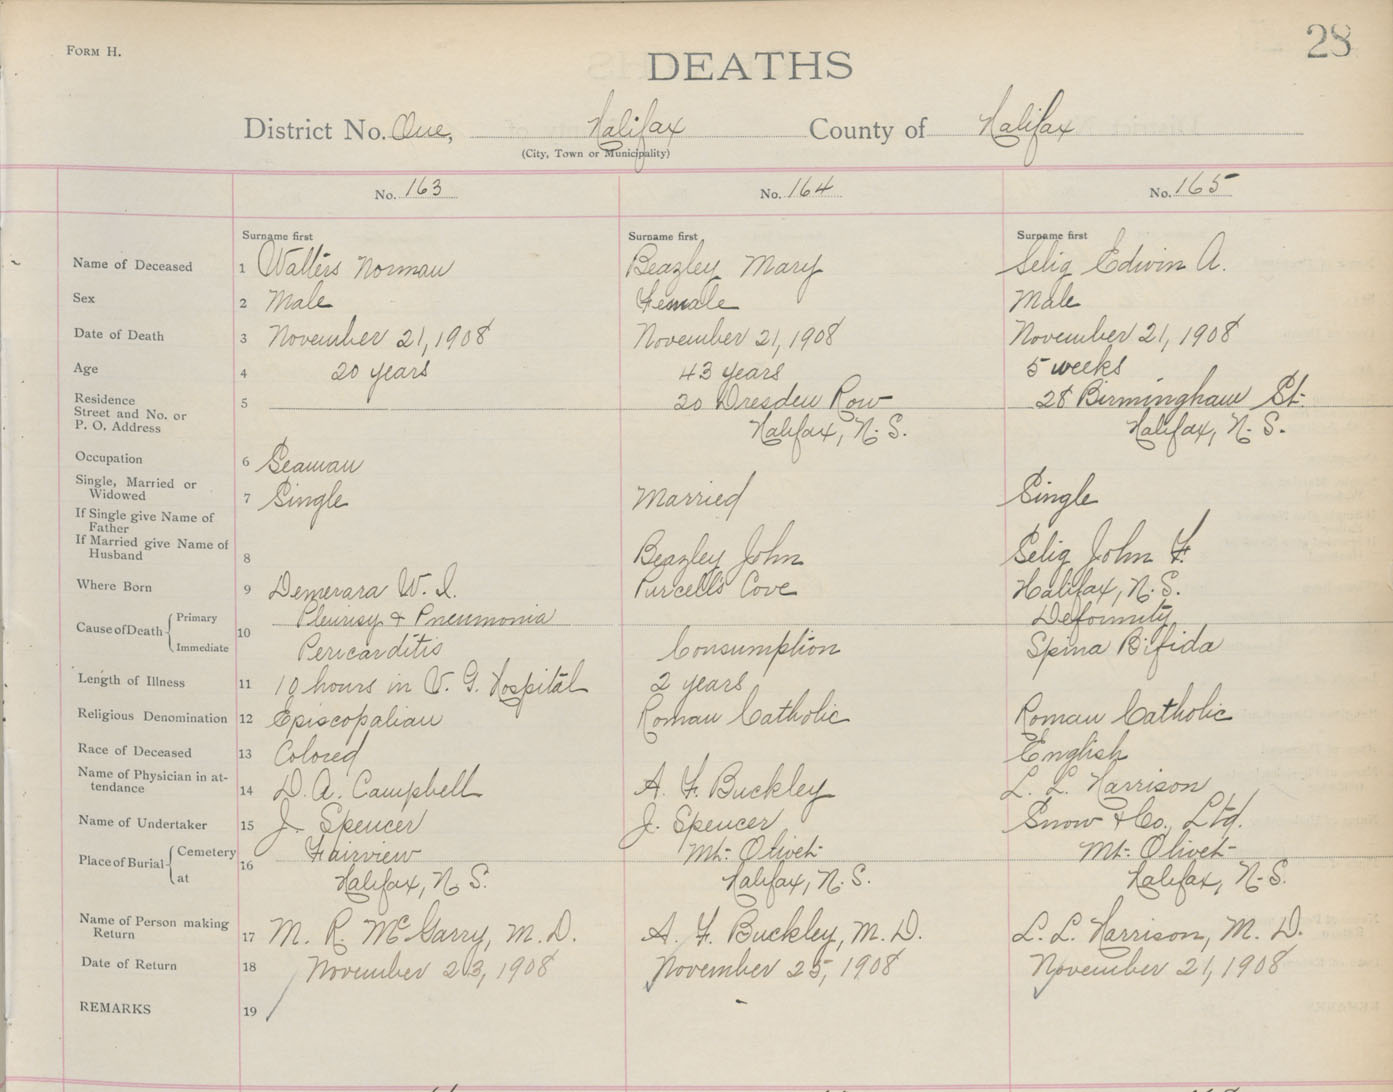 FORM H.
28
DEATHS
District No. One, Halifax County of Halifax
(City, Town or Municipality)
No. 163 No. 164 No. 165
Surname first Surname first Surname first
Name of Deceased 1 Walters Norman Beazley Mary Selig Edwin A.
Sex 2 Male Female Male
Date of Death 3 November 21, 1908 November 21, 1908 November 21, 1908
Age 4 20 years 43 years 5 weeks
Residence 5 20 Dresden Row 28 Birmingham St.
Street and No. or
P. O. Address Halifax, N. S. Halifax, N. S.
Occupation 6 Seaman
Single, Married or
Widowed 7 Single Married Single
If Single give Name of
Father
If Married give Name of
Husband 8 Beazley John Selig John F.
Where Born 9 Demerara W. I. Purcell's Cove Halifax, N. S.
Cause of Death Primary 10 Pleurisy & Pneumonia Deformity
Immediate Pericarditis Consumption Spina Bifida
Length of Illness 11 10 hours in V. G. Hospital 2 years
Religious Denomination 12 Episcopalian Roman Catholic Roman Catholic
Race of Deceased 13 Colored English
Name of Physician in at-
tendance 14 D. A. Campbell A. F. Buckley L. L. Harrison
Name of Undertaker 15 J. Spencer J. Spencer Snow & Co., Ltd.
Place of Burial Cemetery 16 Fairview Mt. Olivet Mt. Olivet
at Halifax, N. S. Halifax, N. S. Halifax, N. S.
Name of Person making
Return 17 M. R. McGarry, M. D. A. F. Buckley, M. D. L. L. Harrison, M. D.
Date of Return 18 November 23, 1908 November 25, 1908 November 21, 1908
REMARKS 19